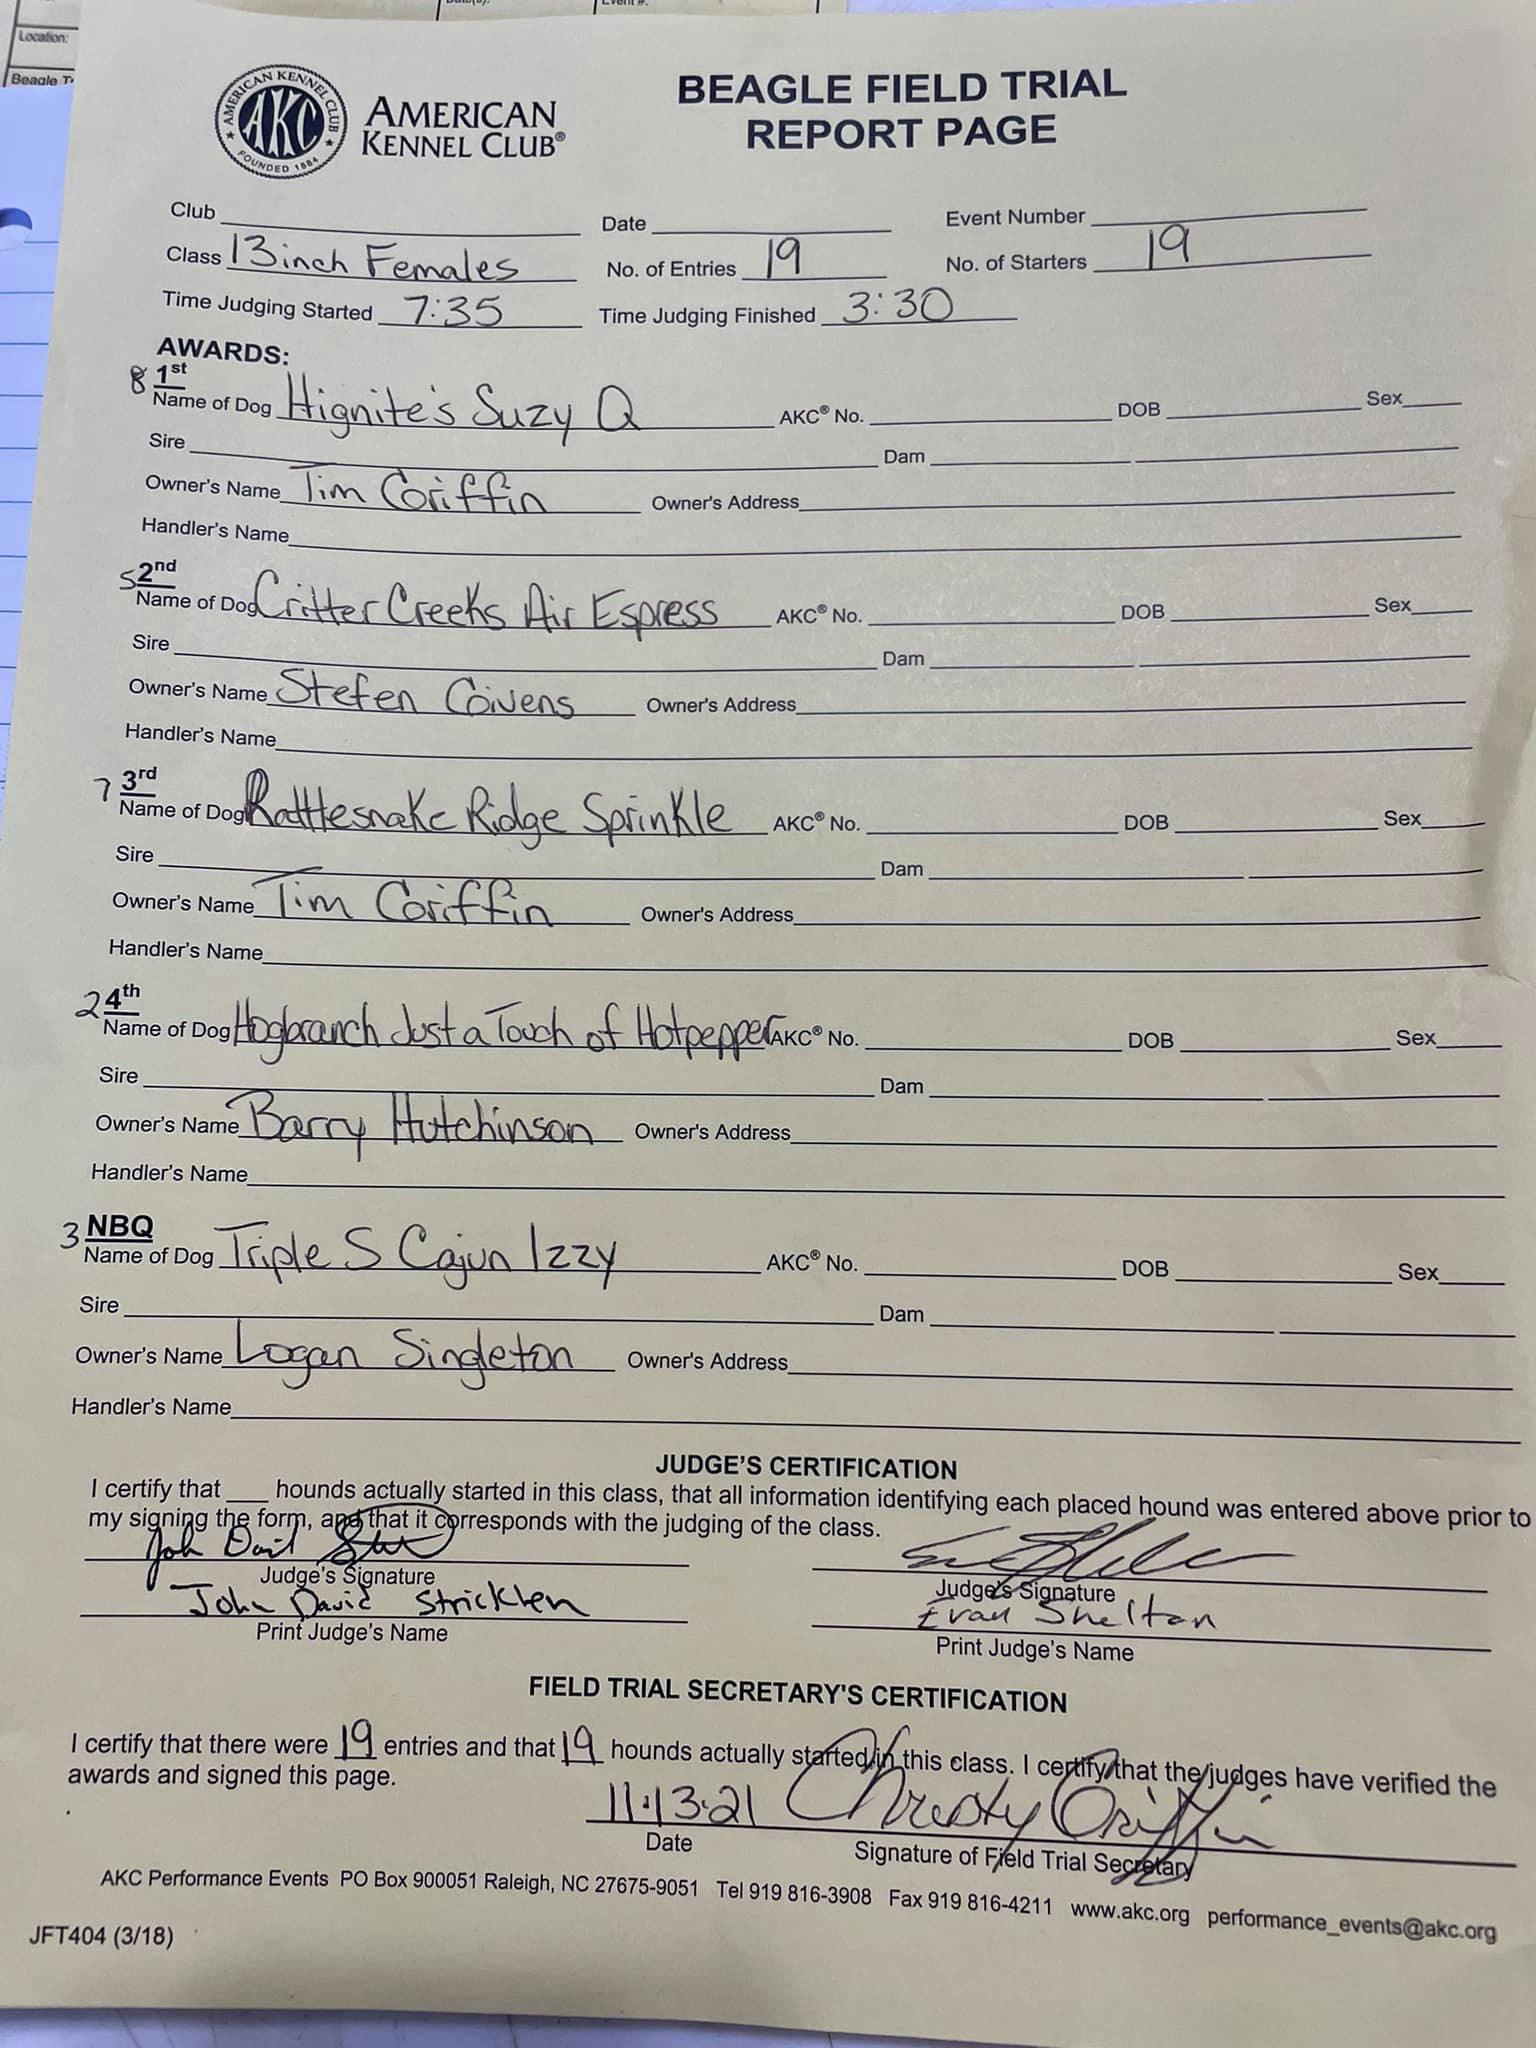 Date(s): Event #:
Location:
Beagle T
AMERICAN KENNEL CLUB
AKC
FOUNDED 1884
AMERICAN
KENNEL CLUB®
BEAGLE FIELD TRIAL
REPORT PAGE
Club Date Event Number
Class 13inch Females No. of Entries 19 No. of Starters 19
Time Judging Started 7:35 Time Judging Finished 3:30
AWARDS:
8 1st
Name of Dog Hignite's Suzy Q AKC® No. DOB Sex
Sire Dam
Owner's Name Tim Griffin Owner's Address
Handler's Name
5 2nd
Name of Dog Critter Creeks Air Espress AKC® No. DOB Sex
Sire Dam
Owner's Name Stefen Givens Owner's Address
Handler's Name
7 3rd
Name of Dog Rattlesnake Ridge Sprinkle AKC® No. DOB Sex
Sire Dam
Owner's Name Tim Griffin Owner's Address
Handler's Name
2 4th
Name of Dog Hogbranch Just a Touch of Hotpepper AKC® No. DOB Sex
Sire Dam
Owner's Name Barry Hutchinson Owner's Address
Handler's Name
3 NBQ
Name of Dog Triple S Cajun Izzy AKC® No. DOB Sex
Sire Dam
Owner's Name Logan Singleton Owner's Address
Handler's Name
JUDGE'S CERTIFICATION
I certify that ___ hounds actually started in this class, that all information identifying each placed hound was entered above prior to
my signing the form, and that it corresponds with the judging of the class.
John David
Judge's Signature Judge's Signature
John David Stricklen Evan Shelton
Print Judge's Name Print Judge's Name
FIELD TRIAL SECRETARY'S CERTIFICATION
I certify that there were 19 entries and that 19 hounds actually started in this class. I certify that the judges have verified the
awards and signed this page.
11.13.21 Christy Griffin
Date Signature of Field Trial Secretary
AKC Performance Events PO Box 900051 Raleigh, NC 27675-9051 Tel 919 816-3908 Fax 919 816-4211 www.akc.org performance_events@akc.org
JFT404 (3/18)